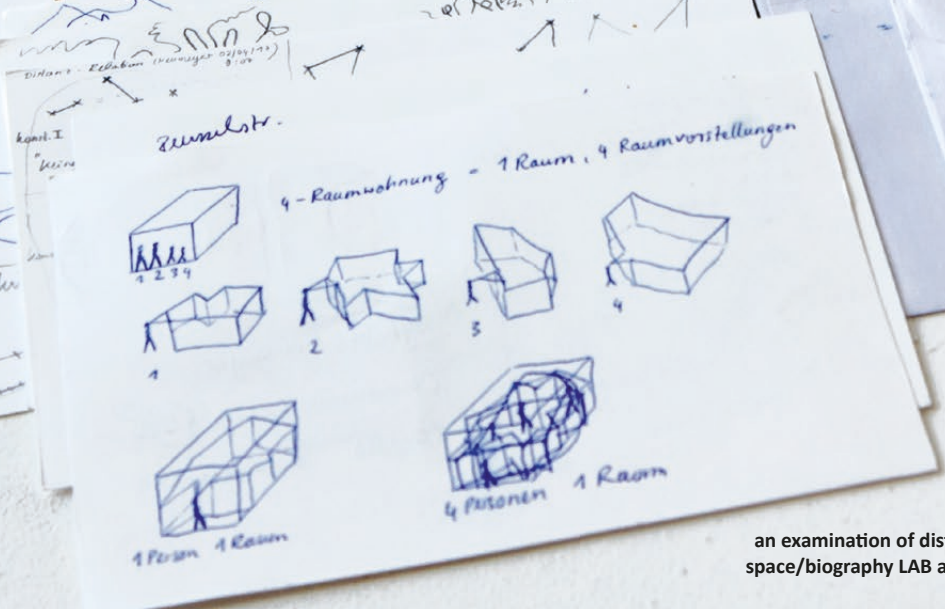 Distanz - Relation
konst. I
"keine
4-Raumwohnung - 1 Raum, 4 Raumvorstellungen
1 2 3 4
1
2
3
4
1 Person 1 Raum
4 Personen 1 Raum
an examination of dis
space/biography LAB a